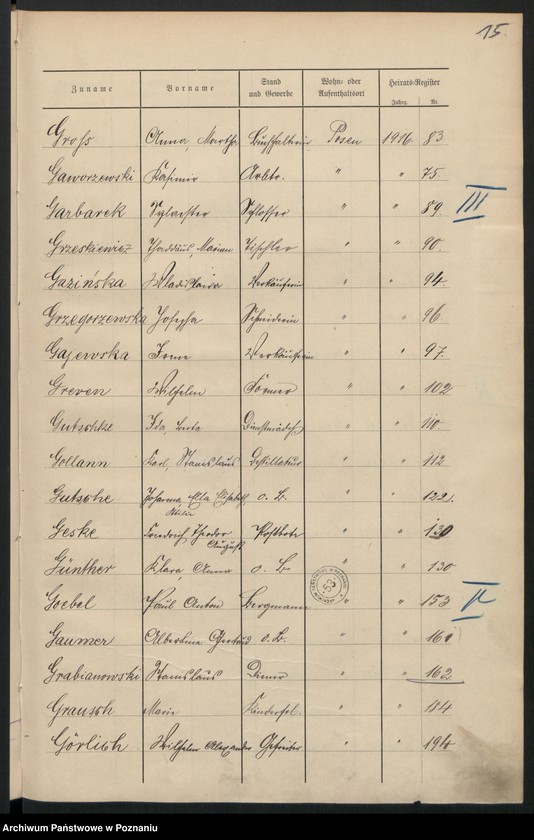 15.
Zuname Vorname Stand und Gewerbe Wohn- oder Aufenthaltsort Heirats-Register
Jahrg. Nr.
Groß Anna, Martha Buchhalterin Posen 1916 83
Gaworzewski Kasimir Arbtr. " " 75.
Garbarek Sylvester Schlosser " " 89. III
Grzeskiewicz Thaddäus, Marian Tischler " " 90.
Gazińska Wladislawa Verkäuferin " " 94.
Grzegorzewska Josepha Schneiderin " " 96
Gajewska Irene Verkäuferin " " 97.
Greven Wilhelm Former " " 102
Gutschke Ida, Berta Dienstmädch. " " 110.
Gollann Karl, Stanislaus Destillateur " " 112
Gutsche Johanna Ella o. B. " " 122.
Geske Friedrich Theodor August Postbote " " 130
Günther Klara, Anna o. B. " " 130
Goebel Paul Anton Bergmann " " 153 IV
Gaumer Albertine Gertrud o. B. " " 160
Grabianowski Stanislaus Diener " " 162
Grausch Marie Kinderfrl. " " 184
Görlich Wilhelm Alexander Gefreiter " " 194
53
Archiwum Państwowe w Poznaniu